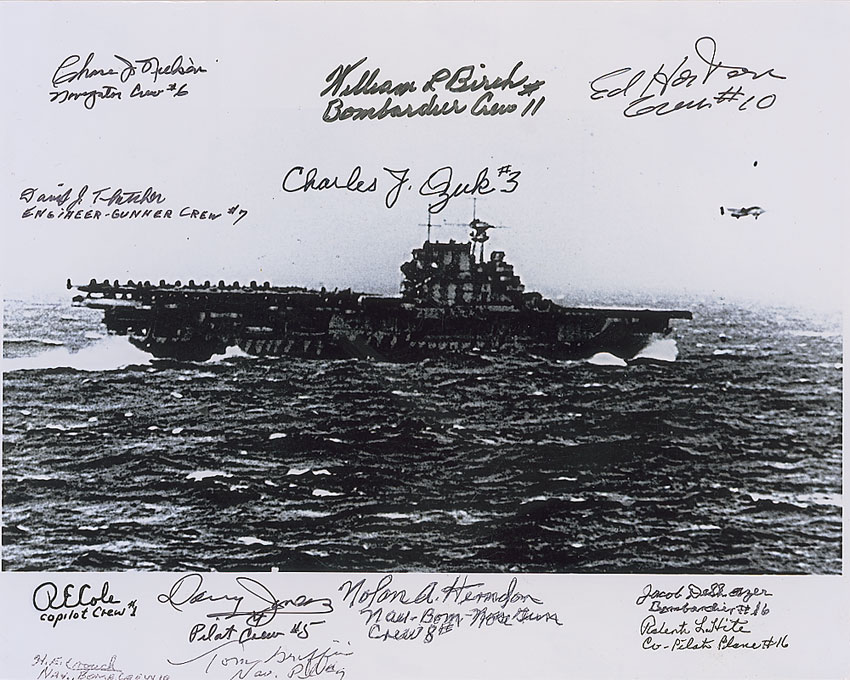 Chase J. Nielsen
Navigator Crew #6
William L Birch #
Bombardier Crew 11
Ed Horton
Crew #10
David J. Thatcher
ENGINEER-GUNNER CREW #7
Charles J. Ozuk #3
R E Cole
copilot Crew #1
Davy Jones
Pilot Crew #5
Nolan A. Herndon
Nav-Bom-Nose Guns
Crew 8
Jacob DeShazer
Bombardier #16
Robert L. Hite
Co-Pilot Plane #16
Tom Griffin
Nav.
Nav., BOMB CREW